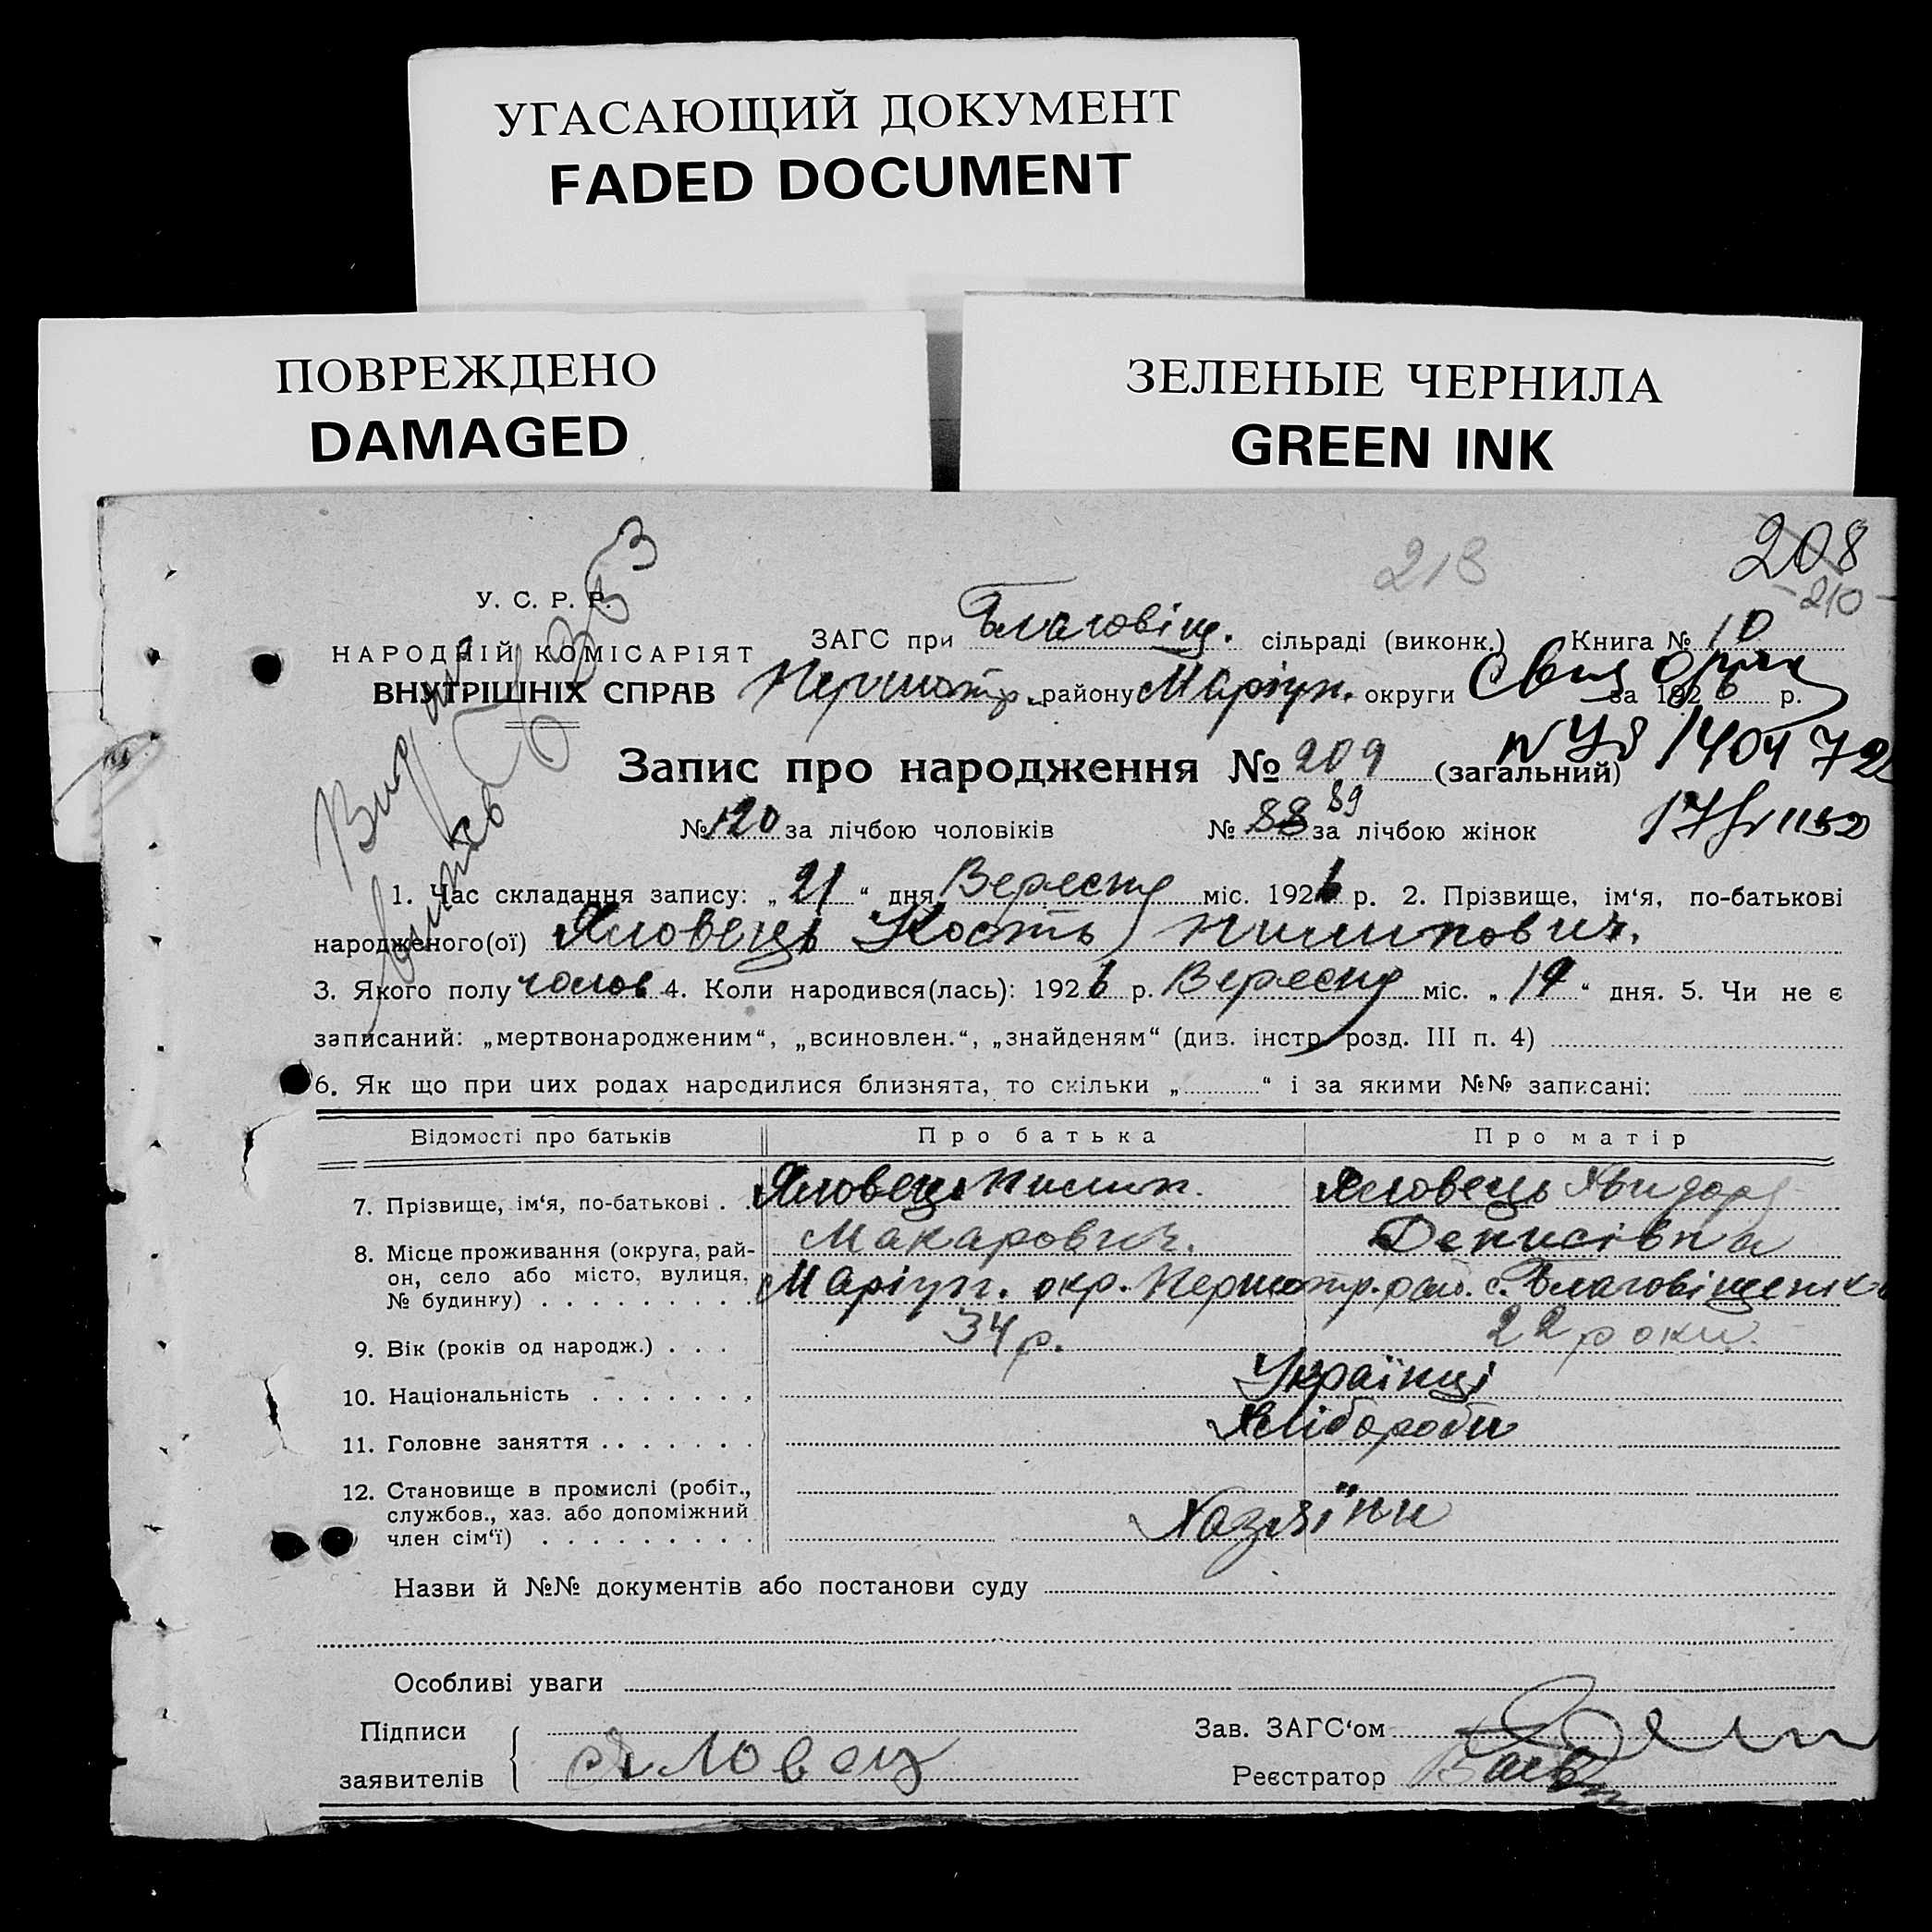 УГАСАЮЩИЙ ДОКУМЕНТ
FADED DOCUMENT
ПОВРЕЖДЕНО
DAMAGED
ЗЕЛЕНЫЕ ЧЕРНИЛА
GREEN INK
218
208
-210-
У. С. Р. Р.
НАРОДНІЙ КОМІСАРІЯТ
ВНУТРІШНІХ СПРАВ
ЗАГС при Благовіщ. сільраді (виконк.) Книга № 10
Першотр. району Маріуп. округи за 1926 р.
Запис про народження № 209 (загальний)
№ 120 за лічбою чоловіків № 88 89 за лічбою жінок
1. Час складання запису: „21“ дня Вересня міс. 1926 р. 2. Прізвище, ім‘я, по-батькові
народженого(ої) Яловець Кость Пилипович.
3. Якого полу чолов 4. Коли народився(лась): 1926 р. Вересня міс. „19“ дня. 5. Чи не є
записаний: „мертвонародженим“, „всиновлен.“, „знайденям“ (див. інстр. розд. III п. 4)
6. Як що при цих родах народилися близнята, то скільки „ “ і за якими №№ записані:
Відомості про батьків Про батька Про матір
7. Прізвище, ім‘я, по-батькові . . Яловець Пилип. Яловець
Макарович. Денисівна
8. Місце проживання (округа, рай-
он, село або місто, вулиця,
№ будинку) . . . . . . . . . Маріуп. окр. Першотр. с. Благовіщенка
9. Вік (років од народж.) . . . 34 р. 22 роки.
10. Національність . . . . . . . Українці
11. Головне заняття . . . . . . . Хлібороби
12. Становище в промислі (робіт.,
службов., хаз. або допоміжний
член сім‘ї) . . . . . . . . . Хазяїни
Назви й №№ документів або постанови суду
Особливі уваги
Підписи
заявителів Яловец
Зав. ЗАГС‘ом
Реєстратор